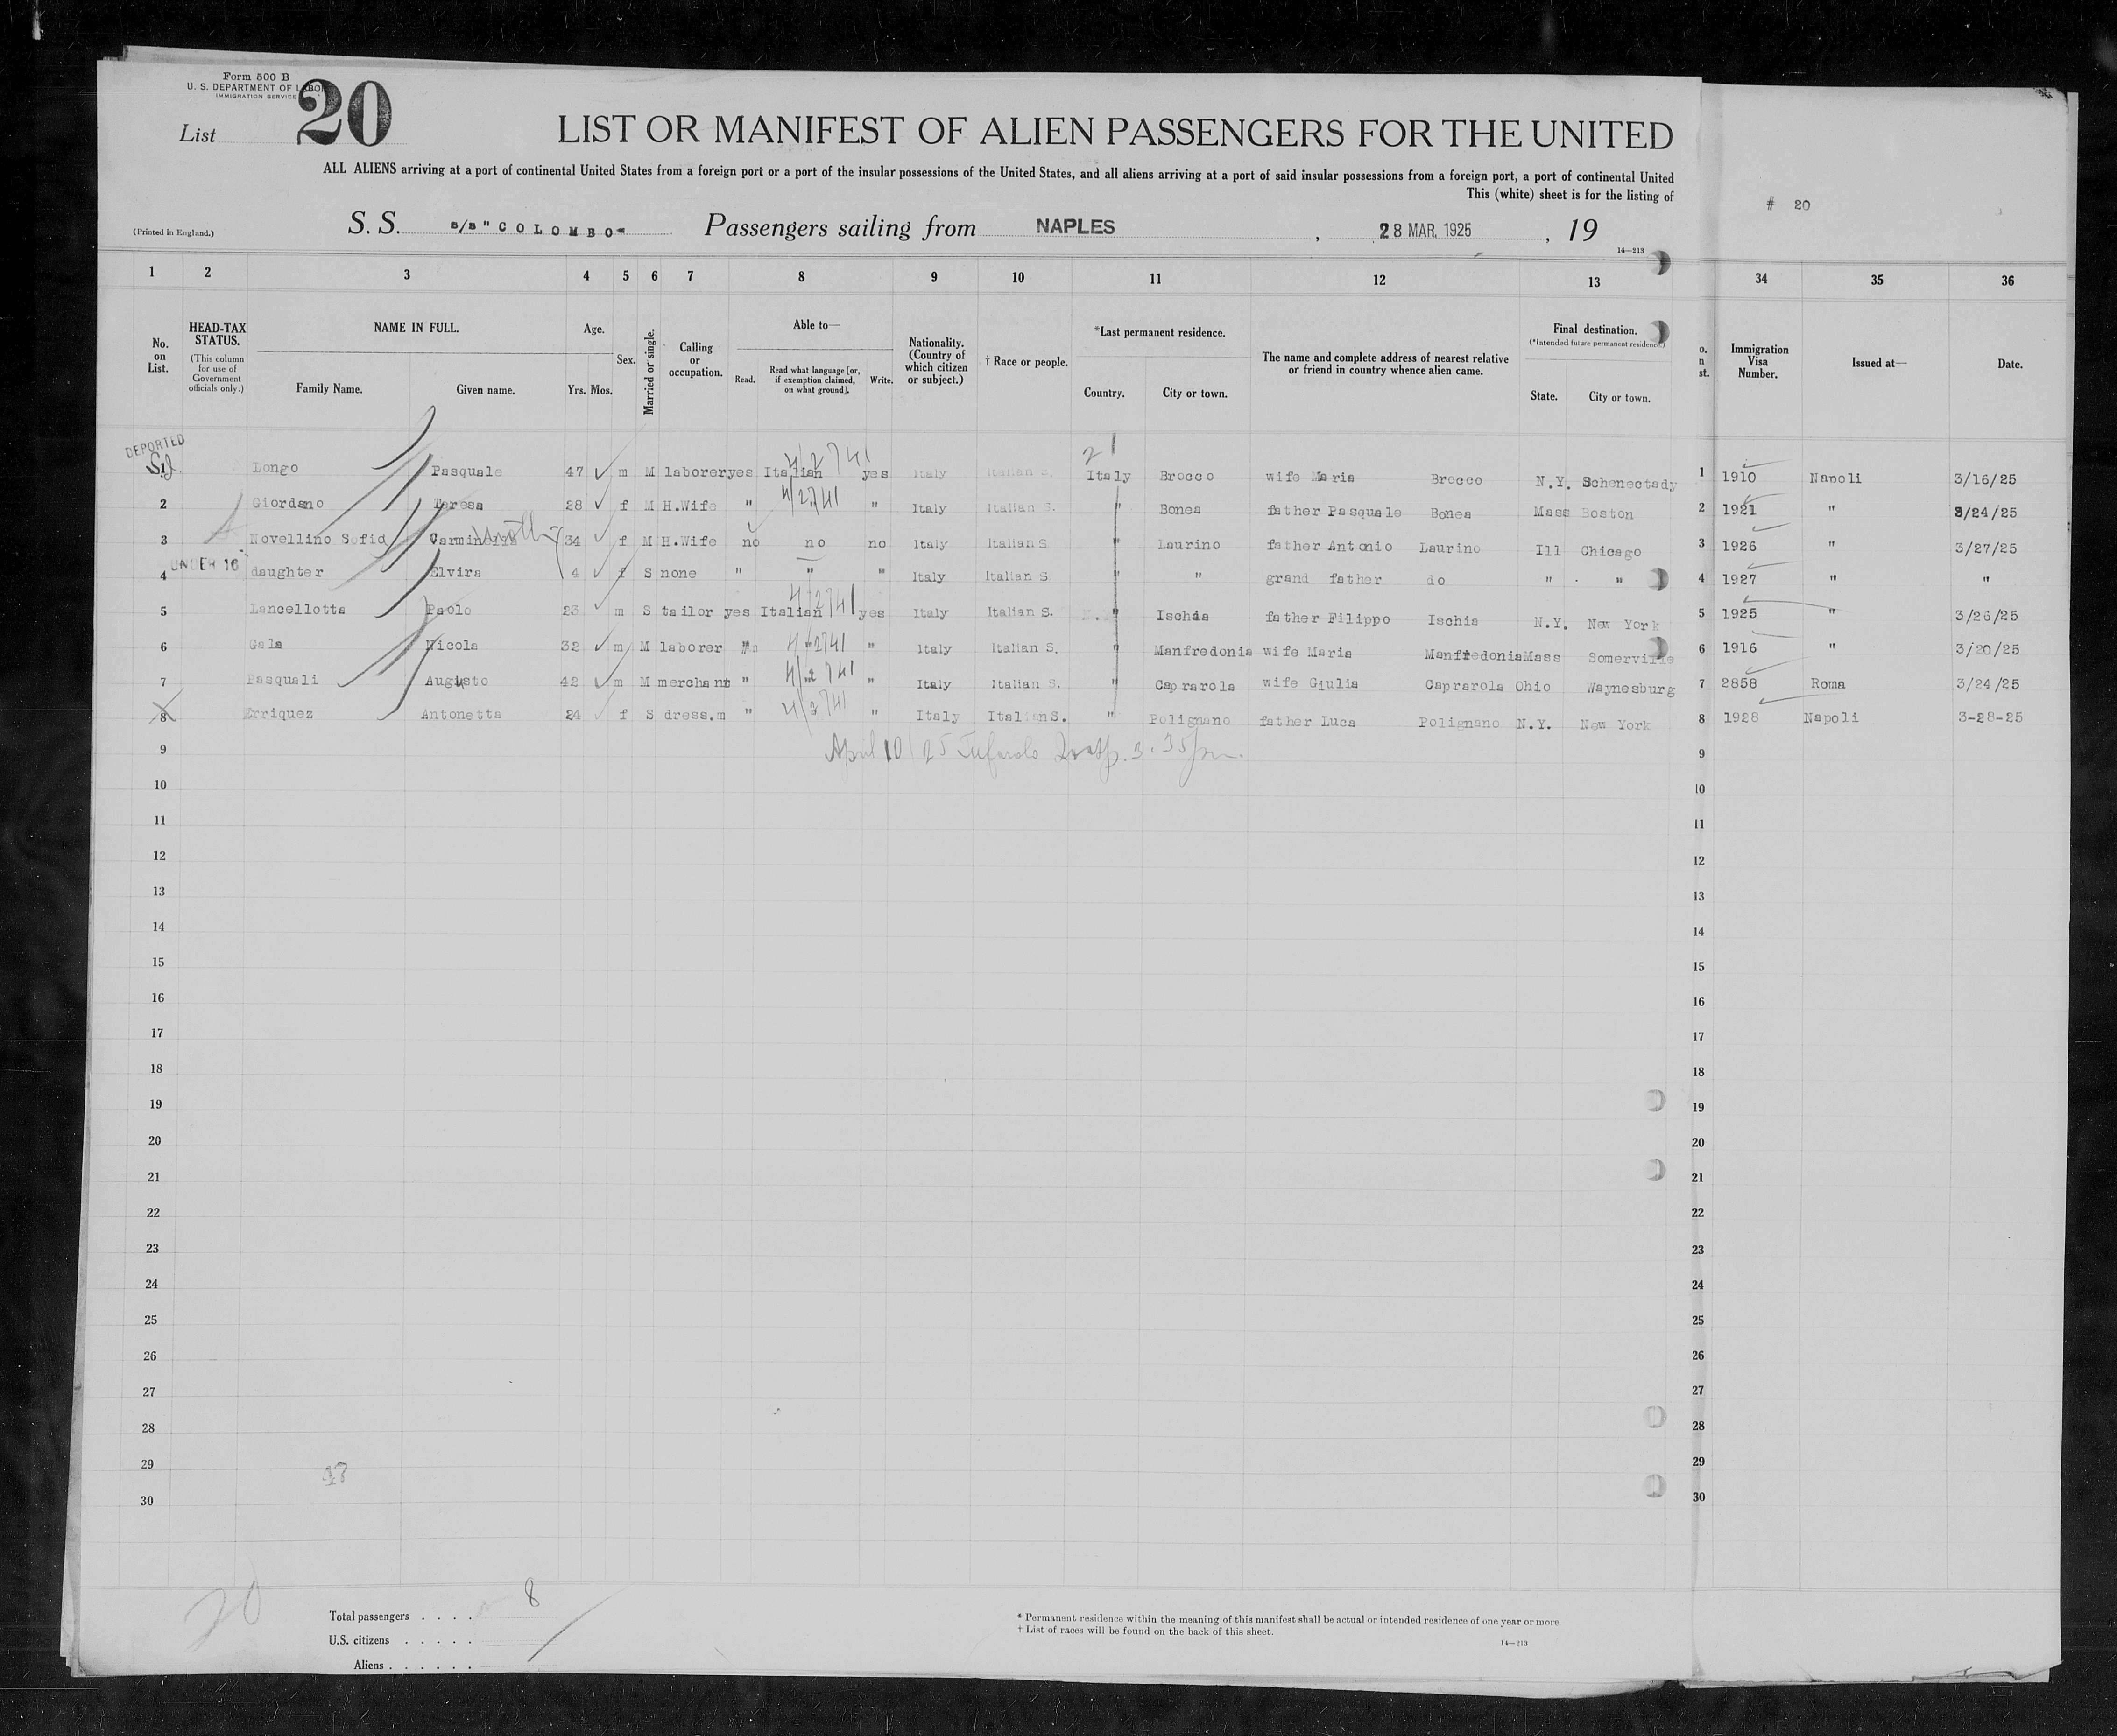 Form 500 B
U. S. DEPARTMENT OF LABOR
IMMIGRATION SERVICE
List 20
LIST OR MANIFEST OF ALIEN PASSENGERS FOR THE UNITED
ALL ALIENS arriving at a port of continental United States from a foreign port or a port of the insular possessions of the United States, and all aliens arriving at a port of said insular possessions from a foreign port, a port of continental United
This (white) sheet is for the listing of
# 20
(Printed in England.)
S. S. s/s "COLOMBO" Passengers sailing from NAPLES, 28 MAR. 1925, 19
14—213
1 2 3 4 5 6 7 8 9 10 11 12 13 34 35 36
No. on List.
HEAD-TAX STATUS.
(This column for use of Government officials only.)
NAME IN FULL.
Family Name. Given name.
Age.
Yrs. Mos.
Sex.
Married or single.
Calling or occupation.
Able to—
Read. Read what language [or, if exemption claimed, on what ground]. Write.
Nationality. (Country of which citizen or subject.)
† Race or people.
*Last permanent residence.
Country. City or town.
The name and complete address of nearest relative or friend in country whence alien came.
Final destination.
(*Intended future permanent residence.)
State. City or town.
o. n st.
Immigration Visa Number.
Issued at—
Date.
DEPORTED
21
Longo Pasquale 47 m M laborer yes Italian 4/2741 yes Italy Italian S. Italy Brocco wife Maria Brocco N.Y. Schenectady 1 1910 Napoli 3/16/25
2 Giordano Teresa 28 f M H.Wife " 4/2741 " Italy Italian S. " Bonea father Pasquale Bonea Mass Boston 2 1921 " 3/24/25
3 Novellino Sofia 34 f M H.Wife no no no Italy Italian S " Laurino father Antonio Laurino Ill Chicago 3 1926 " 3/27/25
UNDER 16
4 daughter Elvira 4 f S none " " " Italy Italian S. " " grand father do " " 4 1927 " "
5 Lancellotta Paolo 23 m S tailor yes Italian 4/2741 yes Italy Italian S. " Ischia father Filippo Ischia N.Y. New York 5 1925 " 3/26/25
6 Gala Nicola 32 m M laborer " 4/2741 " Italy Italian S. " Manfredonia wife Maria Manfredonia Mass Somerville 6 1916 " 3/20/25
7 Pasquali Augusto 42 m M merchant " 4/2741 " Italy Italian S. " Caprarola wife Giulia Caprarola Ohio Waynesburg 7 2858 Roma 3/24/25
8 Erriquez Antonetta 24 f S dress.m " 4/2741 " Italy Italian S. " Polignano father Luca Polignano N.Y. New York 8 1928 Napoli 3-28-25
9 April 10/25 3.35 pm. 9
10 10
11 11
12 12
13 13
14 14
15 15
16 16
17 17
18 18
19 19
20 20
21 21
22 22
23 23
24 24
25 25
26 26
27 27
28 28
29 29
30 30
20
Total passengers . . . . 8
U.S. citizens . . . . .
Aliens . . . . . .
* Permanent residence within the meaning of this manifest shall be actual or intended residence of one year or more.
† List of races will be found on the back of this sheet.
14—213